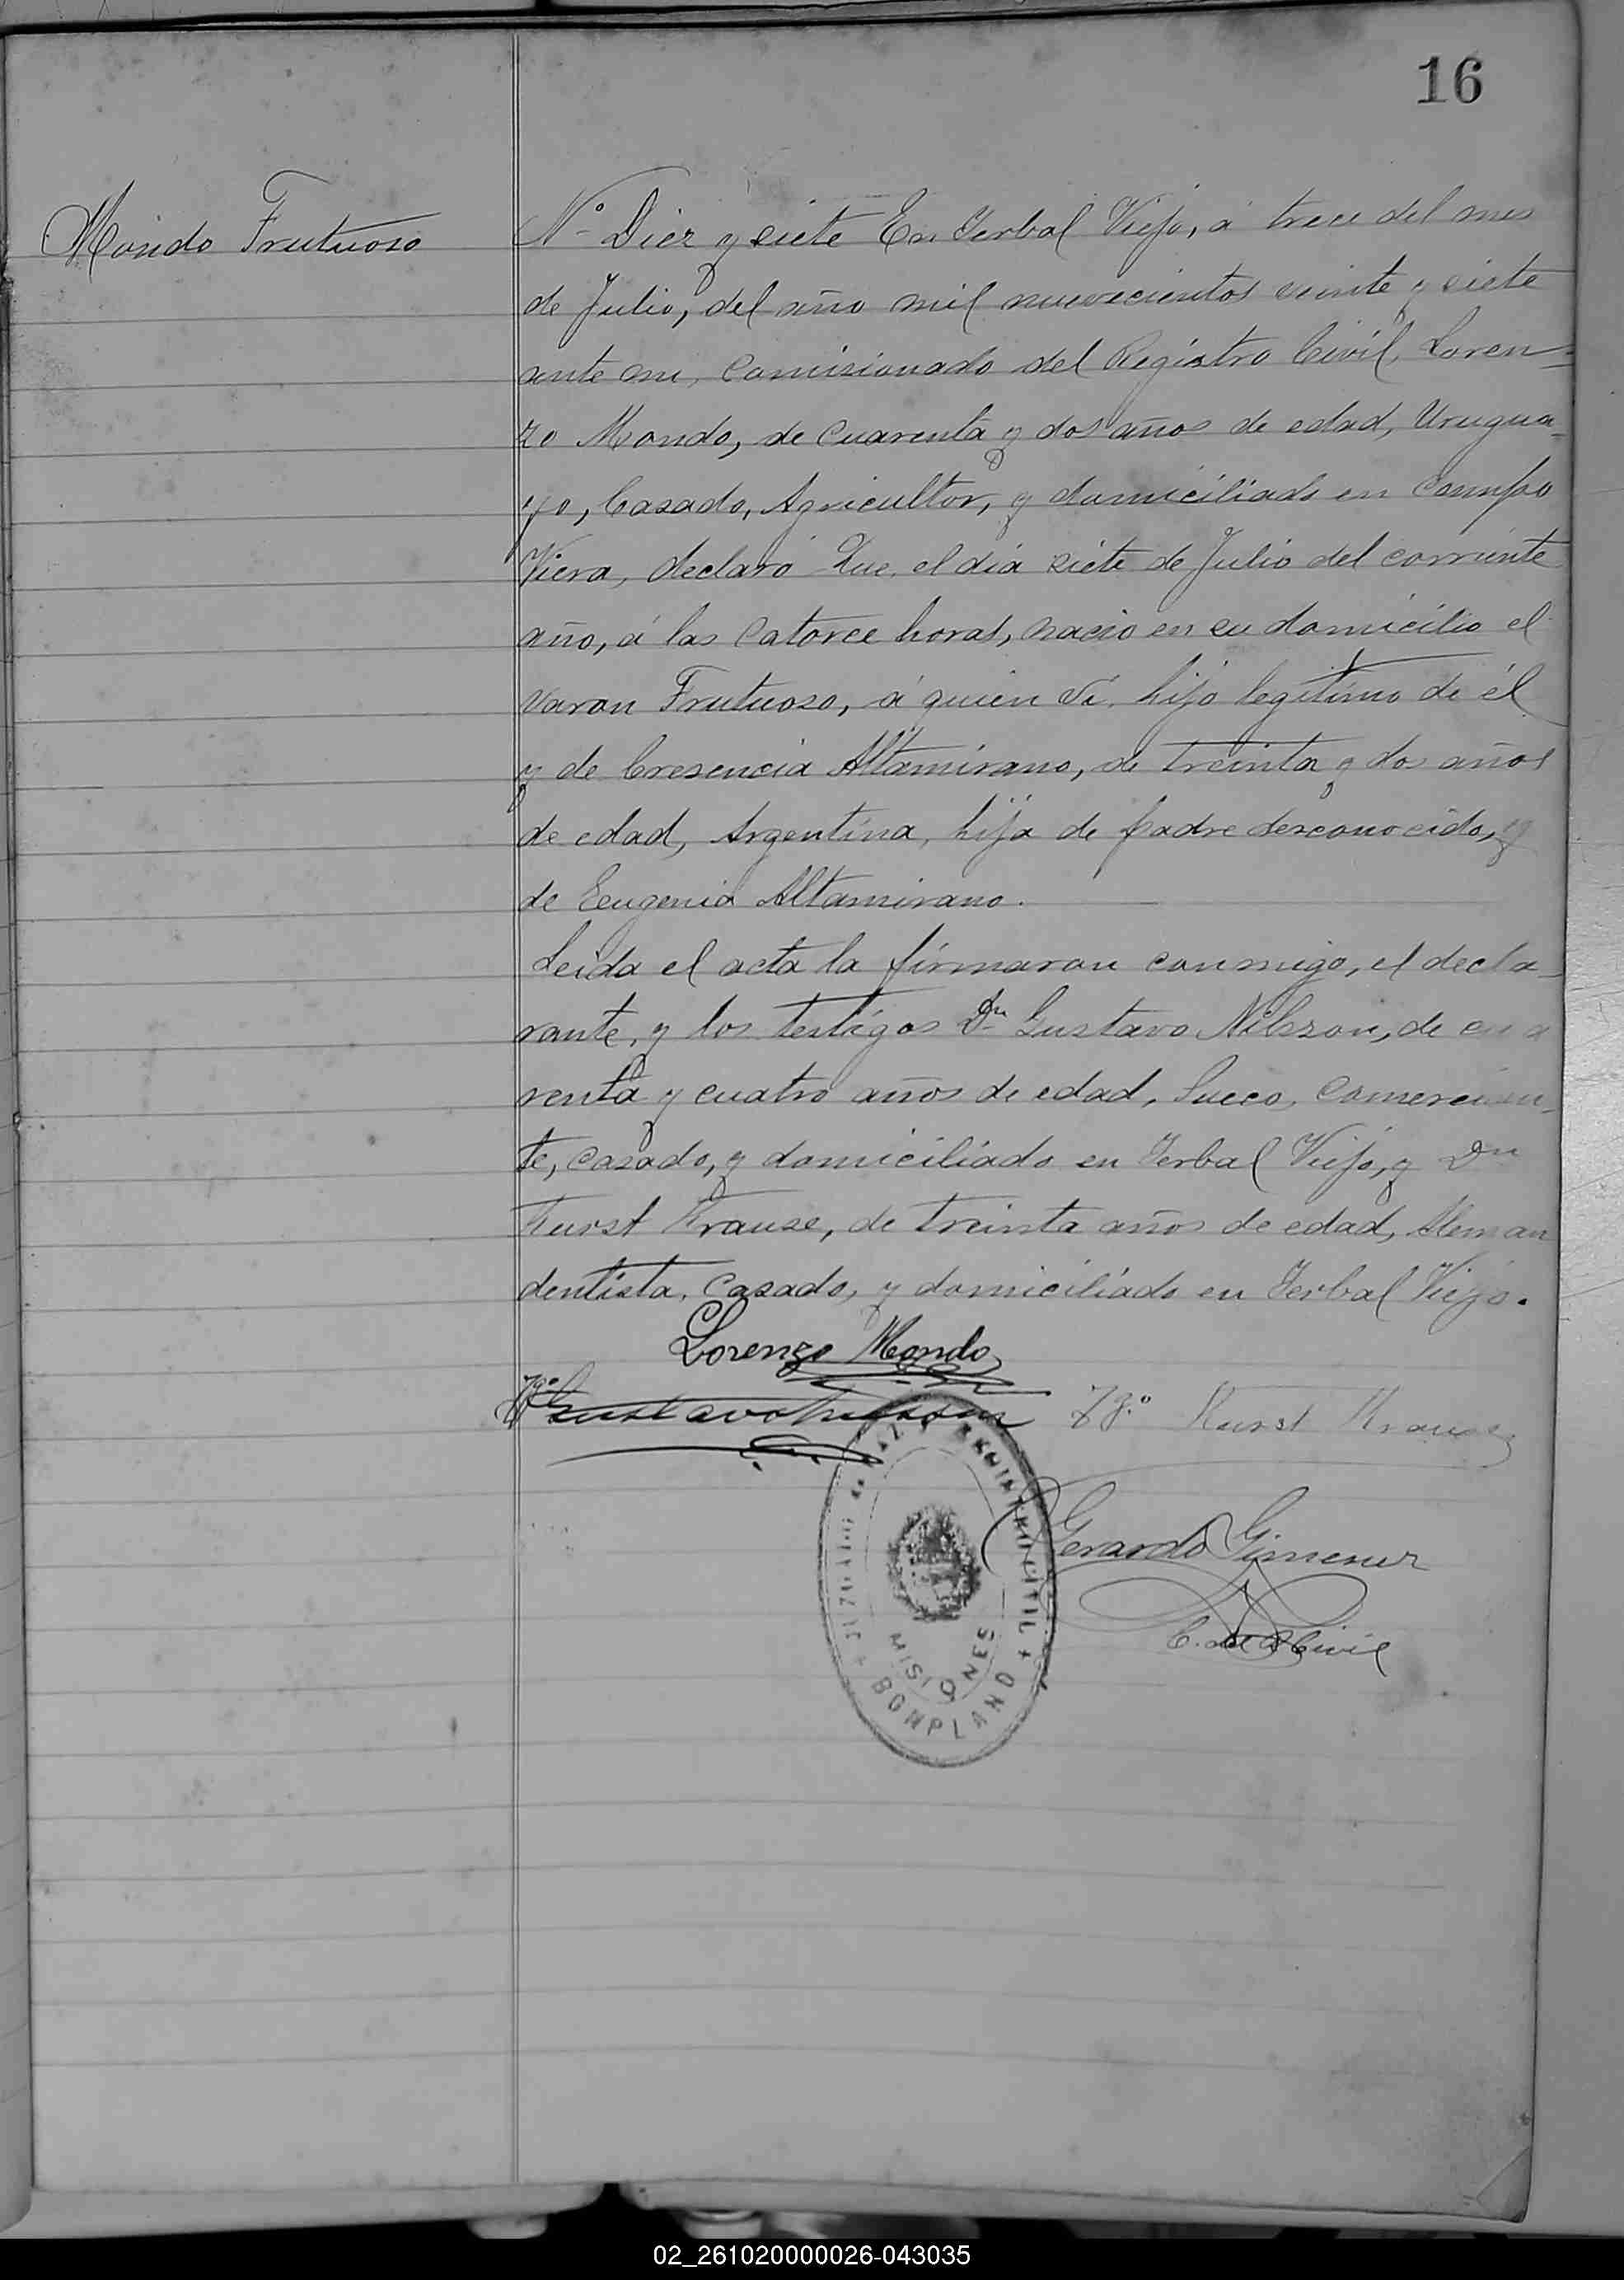 16
Mondo Frutuoso
Nº Diez y siete En Yerbal Viejo, á trece del mes
de Julio, del año mil nuevecientos veinte y siete
ante mi, Comisionado del Registro Civil, Loren=
zo Mondo, de Cuarenta y dos años de edad, Urugua=
yo, Casado, Agricultor, y domiciliado en Campo
Viera, declaró Que, el día siete de Julio del corriente
año, á las Catorce horas, nacio en su domicilio el
varon Frutuoso, á quien ví, hijo legitimo de él
y de Cresencia Altamirano, de treinta y dos años
de edad, Argentina, hija de padre desconocido, y
de Eeugenia Altamirano.
Leida el acta la firmaron conmigo, el decla=
rante, y los testigos Dn Gustavo Nilsson, de cua
renta y cuatro años de edad, Sueco, Comercian=
te, Casado, y domiciliado en Yerbal Viejo, y Dn
Kurst Krause, de treinta años de edad, Aleman
dentista, Casado, y domiciliado en Yerbal Viejo.
Lorenzo Mondo
Tgo Gustavo Nilsson Tg.º Kurst Krause
Gerardo Gimenez
C. del R Civil
JUZGADO de PAZ y REGISTRO CIVIL
MISIONES
+ BONPLAND +
02_261020000026-043035